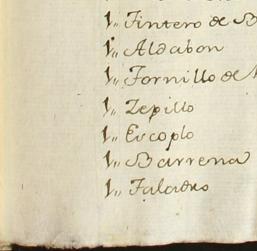 1,, Tintero de B
1,, Aldabon
1,, Tornillo de
1,, Zepillo
1,, Escoplo
1,, Barrena
1,, Taladro